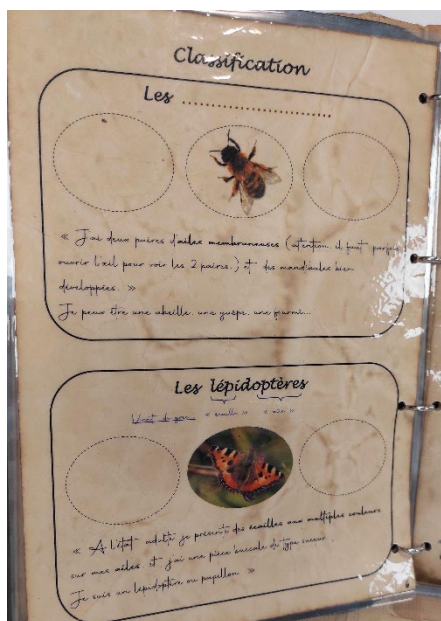 Classification
Les ..............................
« J'ai deux paires d'ailes membraneuses (attention, il faut parfois
ouvrir l'œil pour voir les 2 paires.) et des mandibules bien
développées. »
Je peux être une abeille, une guêpe, une fourmi...
Les lépidoptères
« écaille » « aile »
« A l'état adulte je présente des écailles aux multiples couleurs
sur mes ailes, et j'ai une pièce buccale de type suceur.
Je suis un lépidoptère ou papillon. »